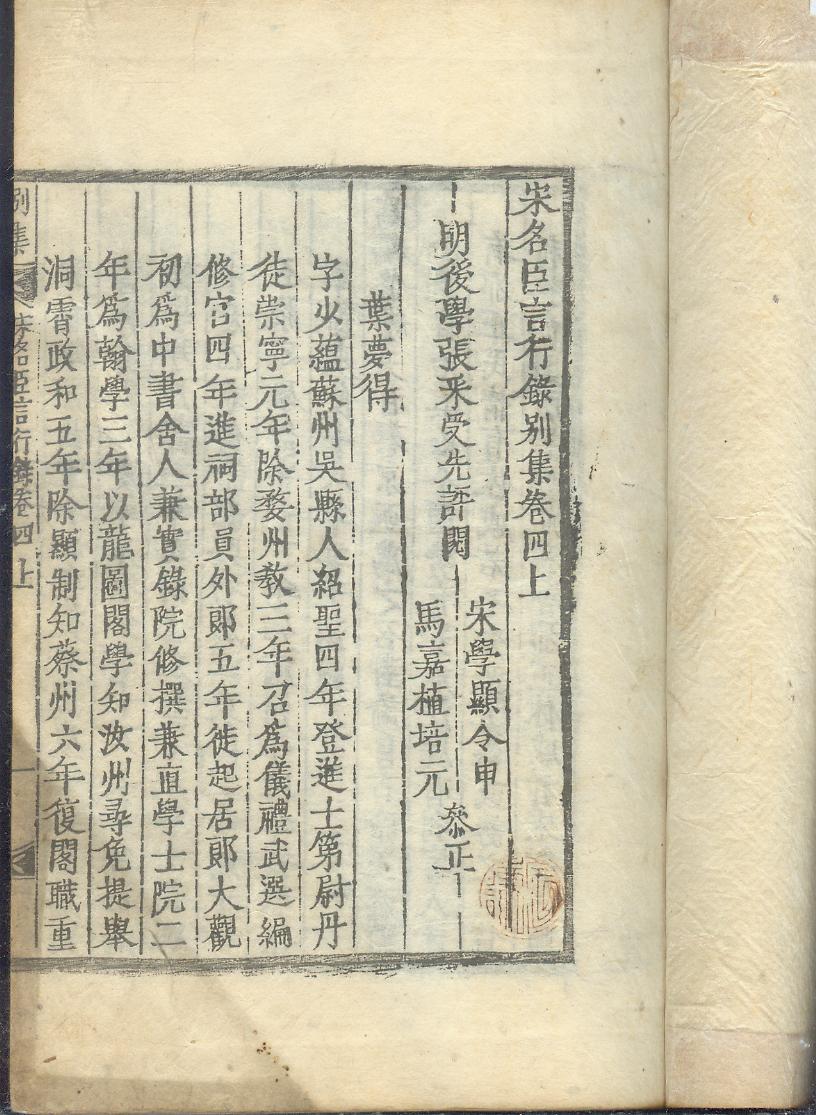 宋名臣言行錄別集卷四上
明後學張釆受先評閱
宋學顯令申
馬嘉植培元
叅正
葉夢得
字少蘊蘇州吳縣人紹聖四年登進士第尉丹
徒崇寧元年除婺州敎三年召爲儀禮武選編
修官四年進祠部員外郞五年徙起居郞大觀
初爲中書舍人兼實錄院修撰兼直學士院二
年爲翰學三年以龍圖閣學知汝州尋免提舉
洞霄政和五年除顯制知蔡州六年復閣職重
別集
宋名臣言行錄卷四上
一